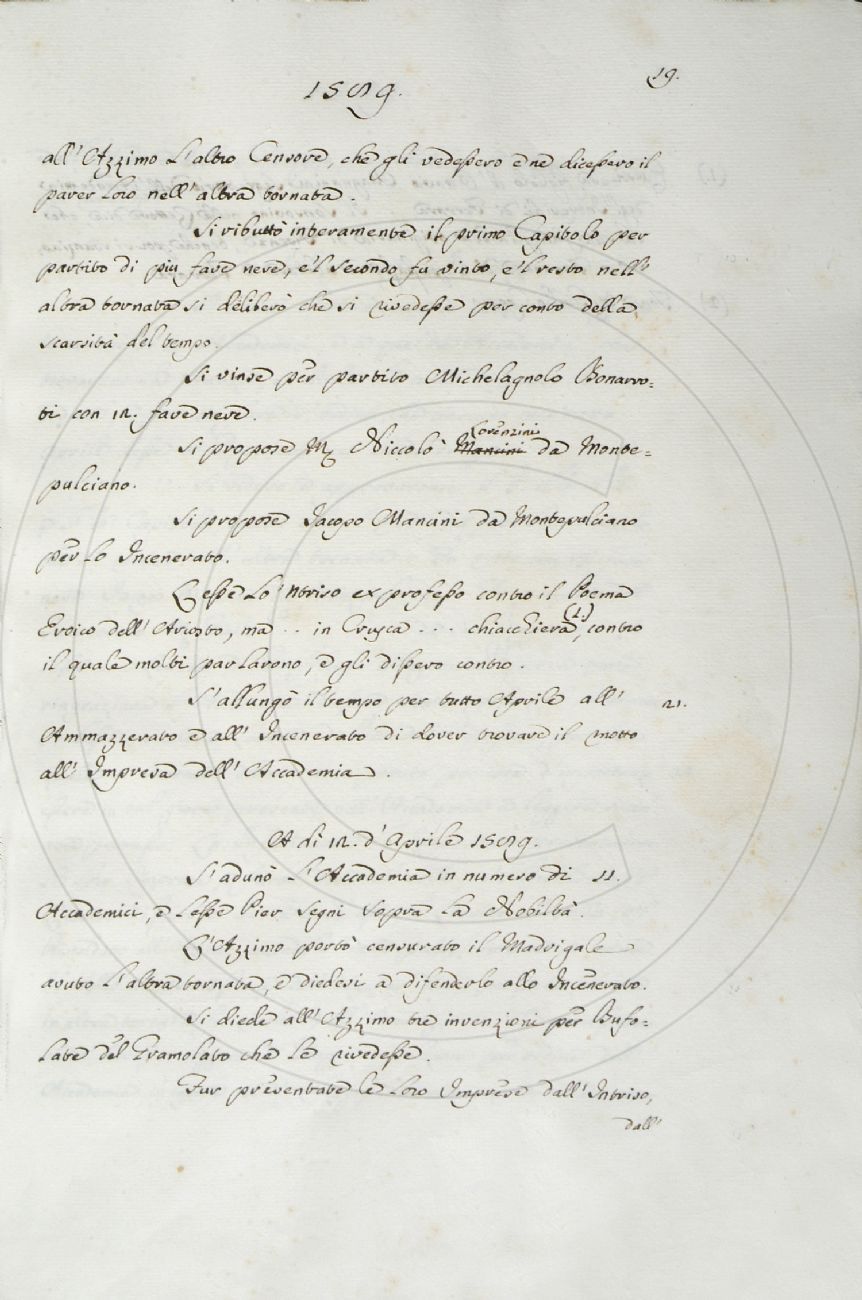 1589.
19.
all' Azzimo l'altro Censore, che gli vedessero e ne dicessero il
parer loro nell' altra tornata.
Si ributtò interamente il primo Capitolo per
partito di piu fave nere, e'l secondo fu vinto, e'l resto nell'
altra tornata si deliberò che si rivedesse per conto della
scarsità del tempo.
Si vinse per partito Michelagnolo Bonarro=
ti con 12. fave nere.
Si propose M. Niccolò Mancini Lorenzini da Monte=
pulciano.
Si propose Jacopo Mancini da Montepulciano
per lo Incenerato.
Lesse lo 'ntriso ex professo contro il Poema
Eroico dell' Ariosto, ma .. in Crusca ... chiacchiera (1), contro
il quale molti parlarono, e gli dissero contro.
S'allungò il tempo per tutto Aprile all' 21.
Ammazzerato e all' Incenerato di dover trovare il motto
all' Impresa dell' Accademia.
A dì 12. d'Aprile 1589.
S'adunò l'Accademia in numero di 11.
Accademici, e lesse Pier Segni sopra la Nobiltà.
L'Azzimo portò censurato il Madrigale
avuto l'altra tornata, e diedesi a difenderlo allo Incenerato.
Si diede all' Azzimo tre invenzioni per Bufo=
late del Gramolato che le rivedesse.
Fur presentate le loro Imprese dall' Intriso,
dall'